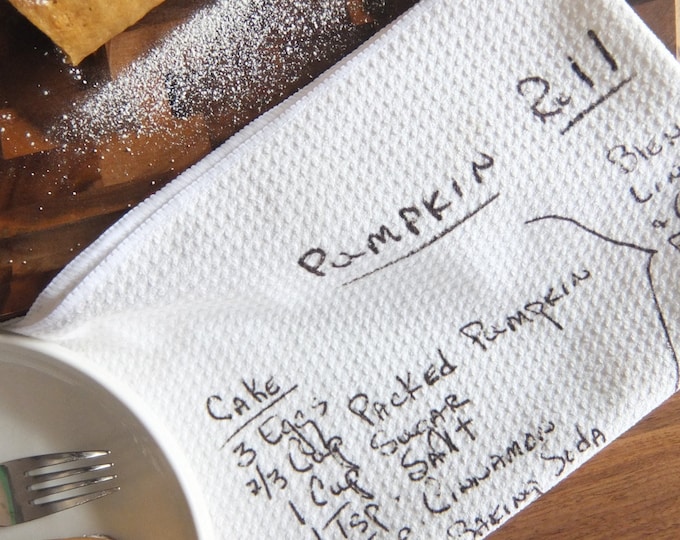 Pumpkin Roll
Cake
3 Eggs
2/3 Cup Packed Pumpkin
1 Cup Sugar
1 Tsp. Salt
Cinnamon
Baking Soda